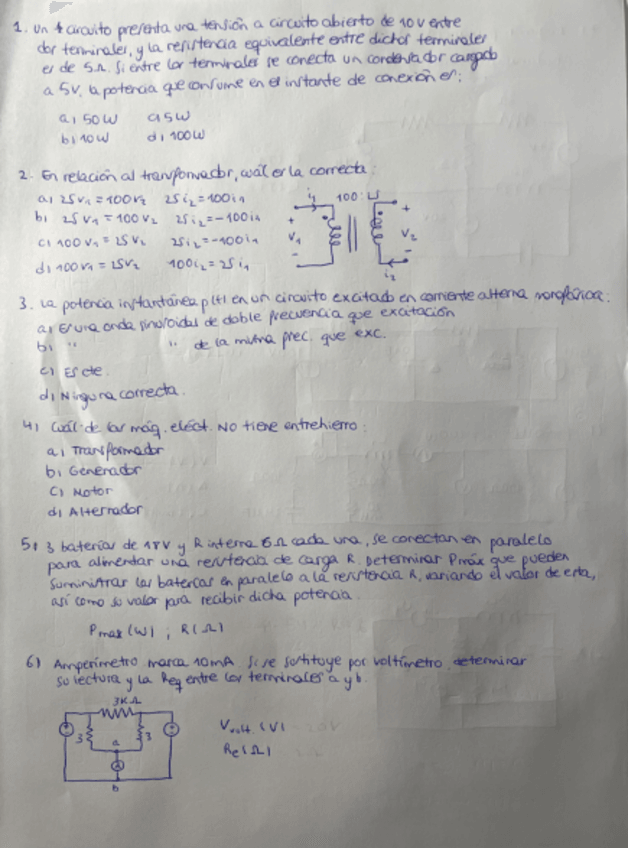 1. Un circuito presenta una tensión a circuito abierto de 10V entre
dos terminales, y la resistencia equivalente entre dichos terminales
es de 5Ω. Si entre los terminales se conecta un condensador cargado
a 5V, la potencia que consume en el instante de conexión es:
a) 50W a 5W
b) 10W d) 100W
2. En relación al transformador, cuál es la correcta:
a) 25v₁ = 100v₂ 25i₂ = 100i₁
b) 25v₁ = 100v₂ 25i₂ = -100i₁
c) 100v₁ = 25v₂ 25i₂ = -100i₁
d) 100v₁ = 25v₂ 100i₂ = 25i₁
i₁ 100:25
+ +
v₁ v₂
- -
i₂
3. La potencia instantánea p(t) en un circuito excitado en corriente alterna monofásica:
a) Es una onda sinusoidal de doble frecuencia que excitación
b) " " de la misma frec. que exc.
c) Es cte.
d) Ninguna correcta.
4) Cuál de las máq. eléct. NO tiene entrehierro:
a) Transformador
b) Generador
c) Motor
d) Alternador
5) 3 baterías de 18V y R interna 6Ω cada una, se conectan en paralelo
para alimentar una resistencia de carga R. Determinar Pmáx que pueden
suministrar las baterías en paralelo a la resistencia R, variando el valor de esta,
así como su valor para recibir dicha potencia.
Pmax (W) ; R (Ω)
6) Amperímetro marca 10mA. Si se sustituye por voltímetro, determinar
su lectura y la Req entre los terminales a y b.
3KΩ
3 a 3
A
b
Vvolt. (V)
Re (Ω)